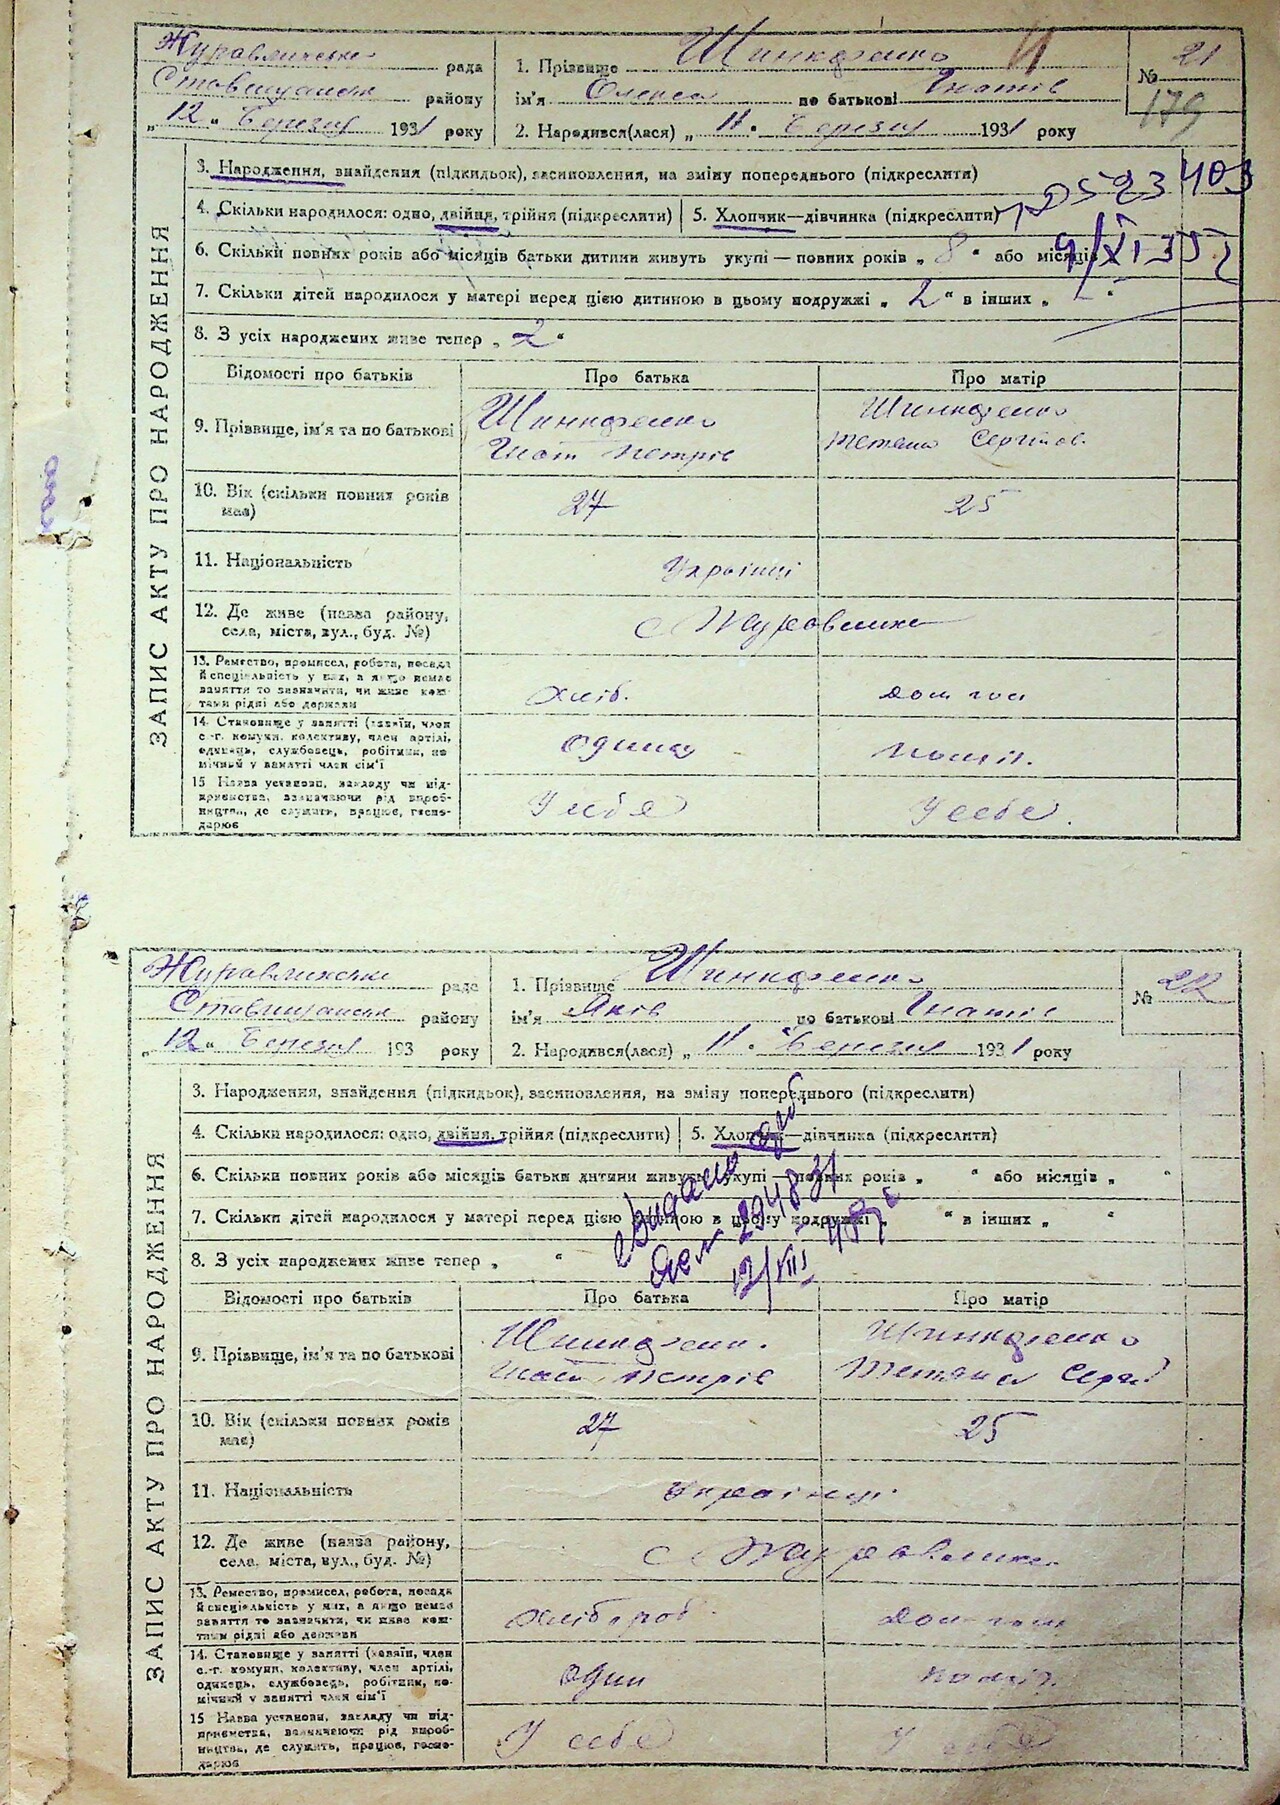 ЗАПИС АКТУ ПРО НАРОДЖЕННЯ
Журавлинська рада
Ставищанськ району
„12“ Березня 1931 року
1. Прізвище Шинкаренко
ім'я Олекса по батькові Гнатів
2. Народився(лася) „11“ Березня 1931 року
№ 21
179
3. Народження, знайдення (підкидьок), засиновлення, на зміну попереднього (підкреслити)
4. Скільки народилося: одно, двійня, трійня (підкреслити) 5. Хлопчик—дівчинка (підкреслити)
523403
6. Скільки повних років або місяців батьки дитини живуть укупі — повних років „ 8 “ або місяців
7. Скільки дітей народилося у матері перед цією дитиною в цьому подружжі „ 2 “ в інших „ - “
8. З усіх народжених живе тепер „ 2 “
Відомості про батьків Про батька Про матір
9. Прізвище, ім'я та по батькові
Шинкаренко
Гнат Петрів
Шинкаренко
Тетяна Сергіїв.
10. Вік (скільки повних років має) 27 25
11. Національність Українці
12. Де живе (назва району, села, міста, вул., буд. №) с Журавлиха
13. Ремество, промисел, робота, посада й спеціяльність у них, а якщо немає заняття то зазначити, чи живе коштами рідні або держави
хліб. дом госп
14. Становище у занятті (хазяїн, член с.-г. комуни, колективу, член артілі, одинець, службовець, робітник, помічний у занятті член сім'ї
одинец поміч.
15 Назва установи, закладу чи підприємства, зазначаючи рід виробництва, де служить, працює, господарює
У себе У себе.
ЗАПИС АКТУ ПРО НАРОДЖЕННЯ
Журавлинська рада
Ставищанськ району
„12“ Березня 193 року
1. Прізвище Шинкаренко
ім'я Яків по батькові Гнатів
2. Народився(лася) „11“ Березня 1931 року
№ 22
3. Народження, знайдення (підкидьок), засиновлення, на зміну попереднього (підкреслити)
4. Скільки народилося: одно, двійня, трійня (підкреслити) 5. Хлопчик—дівчинка (підкреслити)
6. Скільки повних років або місяців батьки дитини живуть укупі — повних років „ “ або місяців „ “
7. Скільки дітей народилося у матері перед цією дитиною в цьому подружжі „ “ в інших „ “
8. З усіх народжених живе тепер „ “
Видано
294831
12/VIII
Відомості про батьків Про батька Про матір
9. Прізвище, ім'я та по батькові
Шинкаренк.
Гнат Петрів
Шинкаренко
Тетяна Сергіїв
10. Вік (скільки повних років має) 27 25
11. Національність Українці
12. Де живе (назва району, села, міста, вул., буд. №) с Журавлиха
13. Ремество, промисел, робота, посада й спеціяльність у них, а якщо немає заняття то зазначити, чи живе коштами рідні або держави
хлібороб. дом госп
14. Становище у занятті (хазяїн, член с.-г. комуни, колективу, член артілі, одинець, службовець, робітник, помічний у занятті член сім'ї
один поміч.
15 Назва установи, закладу чи підприємства, зазначаючи рід виробництва, де служить, працює, господарює
У себе У себе